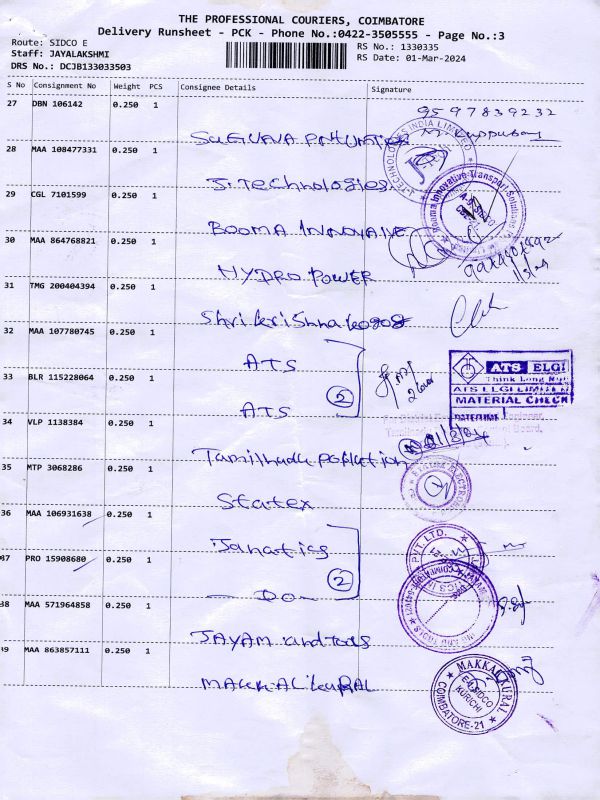 THE PROFESSIONAL COURIERS, COIMBATORE
Delivery Runsheet - PCK - Phone No.:0422-3505555 - Page No.:3
Route: SIDCO E
RS No.: 1330335
Staff: JAYALAKSHMI
RS Date: 01-Mar-2024
DRS No.: DCJB133033503
S No Consignment No Weight PCS Consignee Details Signature
27 DBN 106142 0.250 1
9597839232
28 MAA 108477331 0.250 1
J. Technologies
29 CGL 7101599 0.250 1
BOOMA INNOVATIVE
30 MAA 864768821 0.250 1
HYDRO POWER
1/3/24
31 TMG 200404394 0.250 1
Shri krishna
32 MAA 107780745 0.250 1
ATS
ATS ELGI
Think Long
ATS ELGI LIMITED
MATERIAL CHECK
33 BLR 115228064 0.250 1
2
ATS
34 VLP 1138384 0.250 1
Tamilnadu pollution
35 MTP 3068286 0.250 1
Statex
36 MAA 106931638 0.250 1
Janatics
PVT. LTD.
37 PRO 15908680 0.250 1
2
- DO -
38 MAA 571964858 0.250 1
JAYAM and Tools
39 MAA 863857111 0.250 1
MAKKAL KURAL
MAKKAL KURAL
SIDCO
KURICHI
COIMBATORE-21